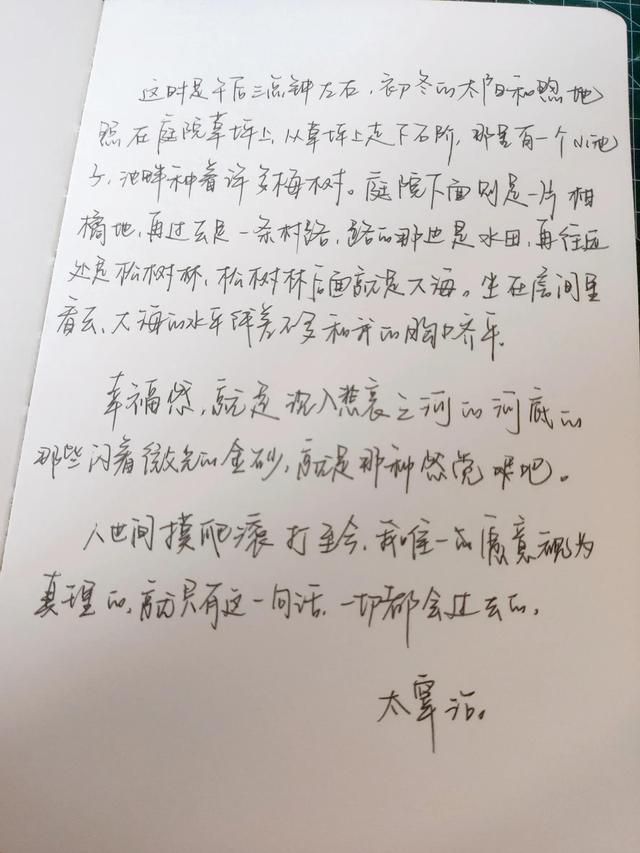 这时是午后三点钟左右，初冬的太阳和煦地
照在庭院草坪上，从草坪上走下石阶，那里有一个小池
子，池畔种着许多梅树。庭院下面则是一片柑
橘地，再过去是一条村路，路的那边是水田，再往远
处是松树林，松树林后面就是大海。坐在房间里
看去，大海的水平线差不多和我的胸口齐平。
幸福感，就是沉入悲哀之河的河底的
那些闪着微光的金砂，就是那种感觉吧。
人世间摸爬滚打至今，我唯一愿意视为
真理的，就只有这一句话，一切都会过去的。
太宰治。